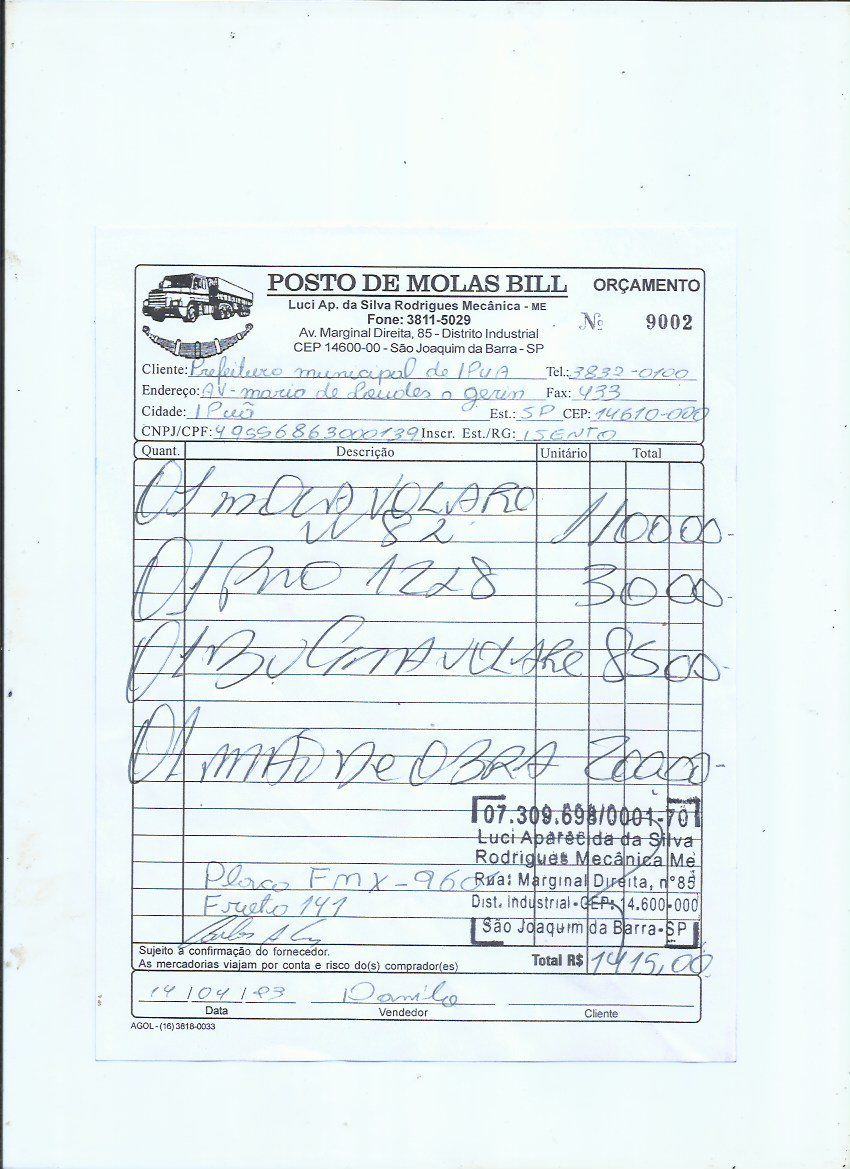 POSTO DE MOLAS BILL
ORÇAMENTO
Luci Ap. da Silva Rodrigues Mecânica - ME
Fone: 3811-5029
Nº 9002
Av. Marginal Direita, 85 - Distrito Industrial
CEP 14600-00 - São Joaquim da Barra - SP
Cliente: Prefeitura municipal de IPUA Tel.: 3832-0100
Endereço: AV- maria de Lourdes a gerin Fax: 433
Cidade: IPuã Est.: SP CEP: 14610-000
CNPJ/CPF: 49556863000139 Inscr. Est./RG: ISENTO
Quant. Descrição Unitário Total
01 MOLA VOLARE 110000-
W 8 2
01 PINO 1228 3000-
01 BUCHA VOLARE 8500-
01 MÃO De OBRA 20000-
07.309.698/0001-70
Luci Aparecida da Silva
Rodrigues Mecânica Me
Placa FMX-960
Rua: Marginal Direita, nº 85
Frota 141
Dist. Industrial - CEP: 14.600-000
São Joaquim da Barra - SP
Sujeito à confirmação do fornecedor.
As mercadorias viajam por conta e risco do(s) comprador(es)
Total R$ 1415,00
14/04/23 Danilo
Data Vendedor Cliente
AGOL - (16) 3818-0033